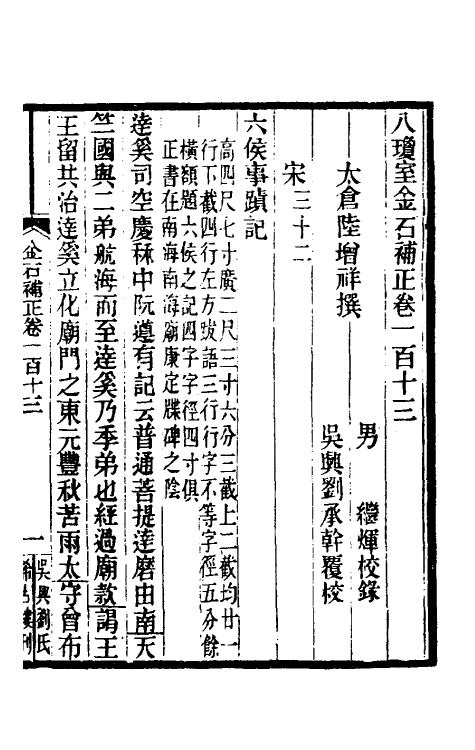 八瓊室金石補正卷一百十三
太倉陸增祥撰
男　繼煇校錄
吳興劉承幹覆校
宋三十二
六侯事蹟記
高四尺七寸廣二尺三寸六分三截上二截均廿一
行下截四行左方跋語三行行字不等字徑五分餘
橫額題六侯之記四字字徑四寸俱
正書在南海南海廟康定牒碑之陰
達奚司空慶秝中阮遵有記云普通菩提達磨由南天
竺國與二弟航海而至達奚乃季弟也經過廟款謁王
王留共治達奚立化廟門之東元豐秋苦雨太守曾布
金石補正卷一百十三
一
吳興劉氏
希古樓刊